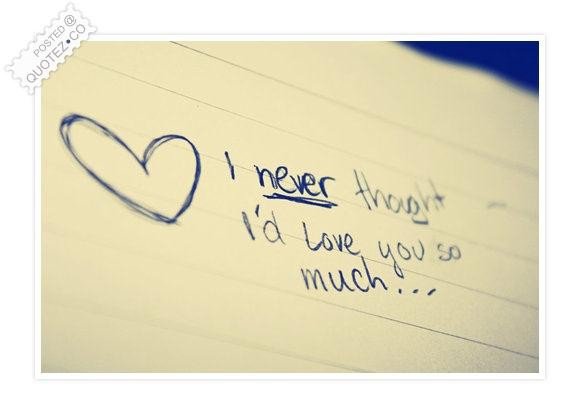 POSTED @
QUOTEZ.CO
I never thought
I'd Love you so
much...